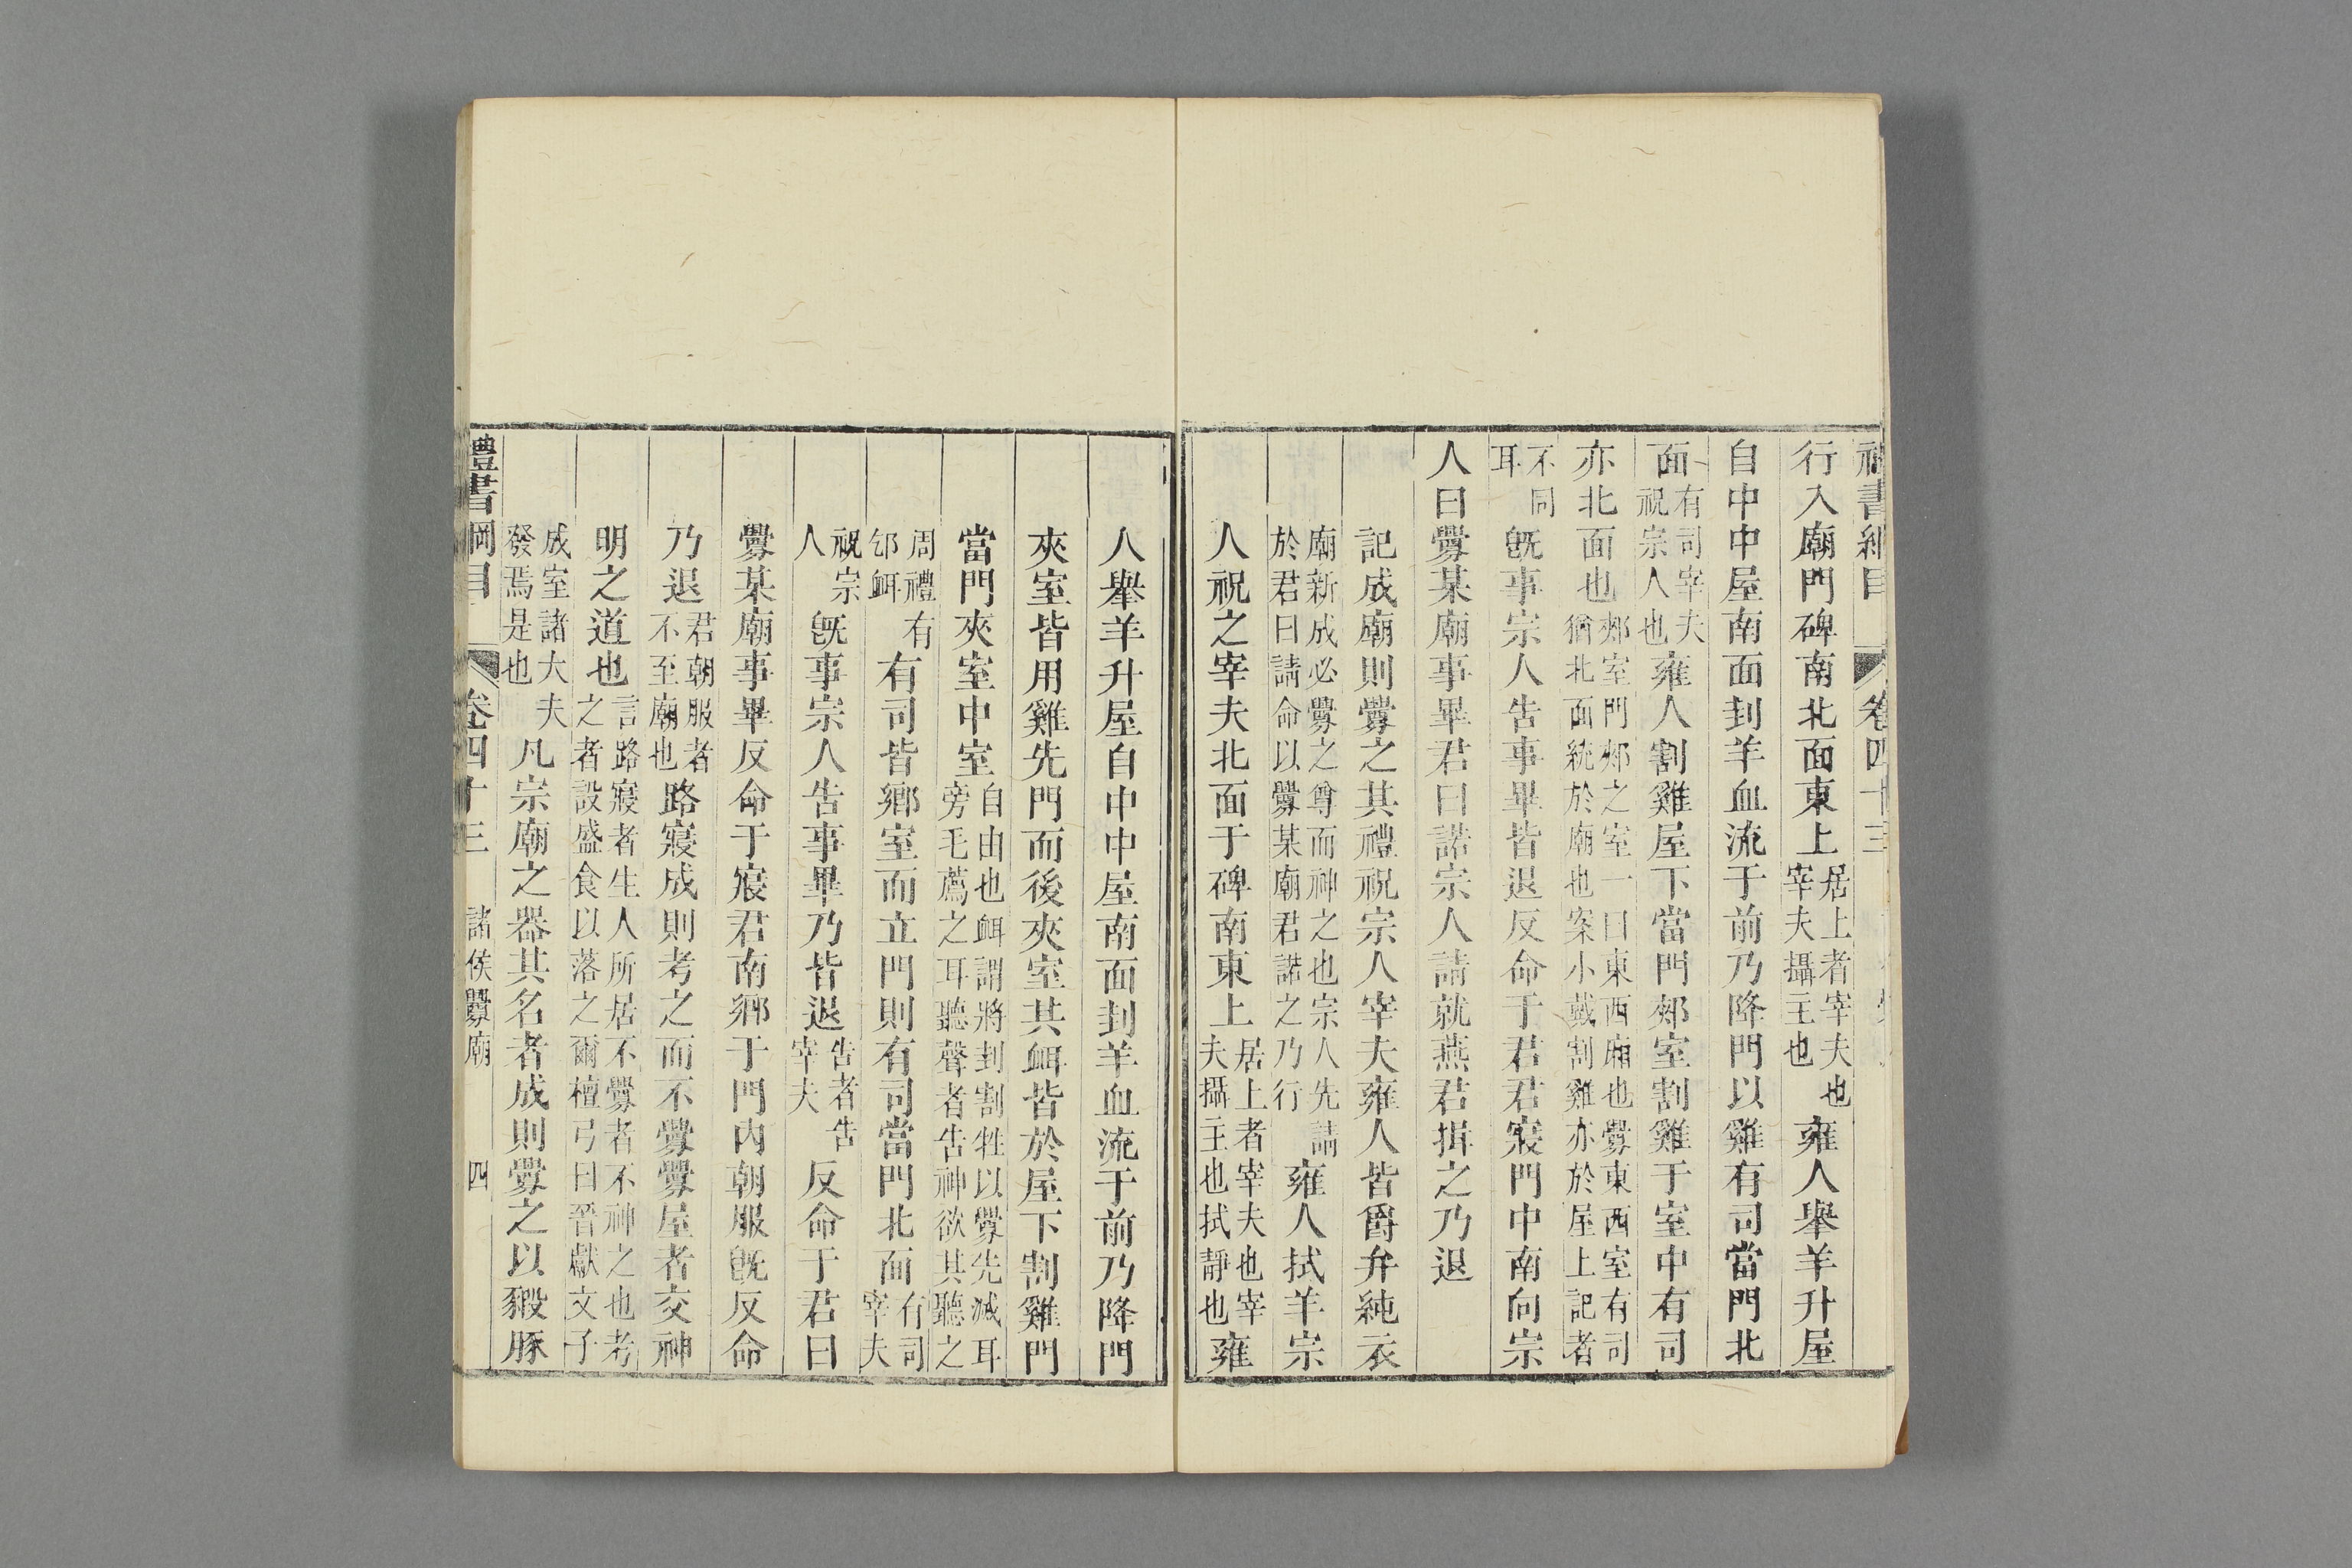 禮書綱目 卷四十三
行入廟門碑南北面東上居上者宰夫也宰夫攝主也雍人舉羊升屋
自中中屋南面刲羊血流于前乃降門以雞有司當門北
面有司宰夫祝宗人也雍人割雞屋下當門郟室割雞于室中有司
亦北面也郟室門郟之室一曰東西廂也釁東西室有司猶北面統於廟也案小戴割雞亦於屋上記者
不同耳旣事宗人告事畢皆退反命于君君寢門中南向宗
人曰釁某廟事畢君曰諾宗人請就燕君揖之乃退
記成廟則釁之其禮祝宗人宰夫雍人皆爵弁純衣
廟新成必釁之尊而神之也宗人先請於君曰請命以釁某廟君諾之乃行雍人拭羊宗
人祝之宰夫北面于碑南東上居上者宰夫也宰夫攝主也拭靜也雍
人舉羊升屋自中中屋南面刲羊血流于前乃降門
夾室皆用雞先門而後夾室其衈皆於屋下割雞門
當門夾室中室自由也衈謂將刲割牲以釁先滅耳旁毛薦之耳聽聲者告神欲其聽之
周禮有刉衈有司皆鄉室而立門則有司當門北面有司宰夫
祝宗人旣事宗人告事畢乃皆退告者告宰夫反命于君曰
釁某廟事畢反命于寢君南鄉于門內朝服旣反命
乃退君朝服者不至廟也路寢成則考之而不釁釁屋者交神
明之道也言路寢者生人所居不釁者不神之也考之者設盛食以落之爾檀弓曰晉獻文子
成室諸大夫發焉是也凡宗廟之器其名者成則釁之以豭豚
禮書綱目 卷四十三 諸侯釁廟 四